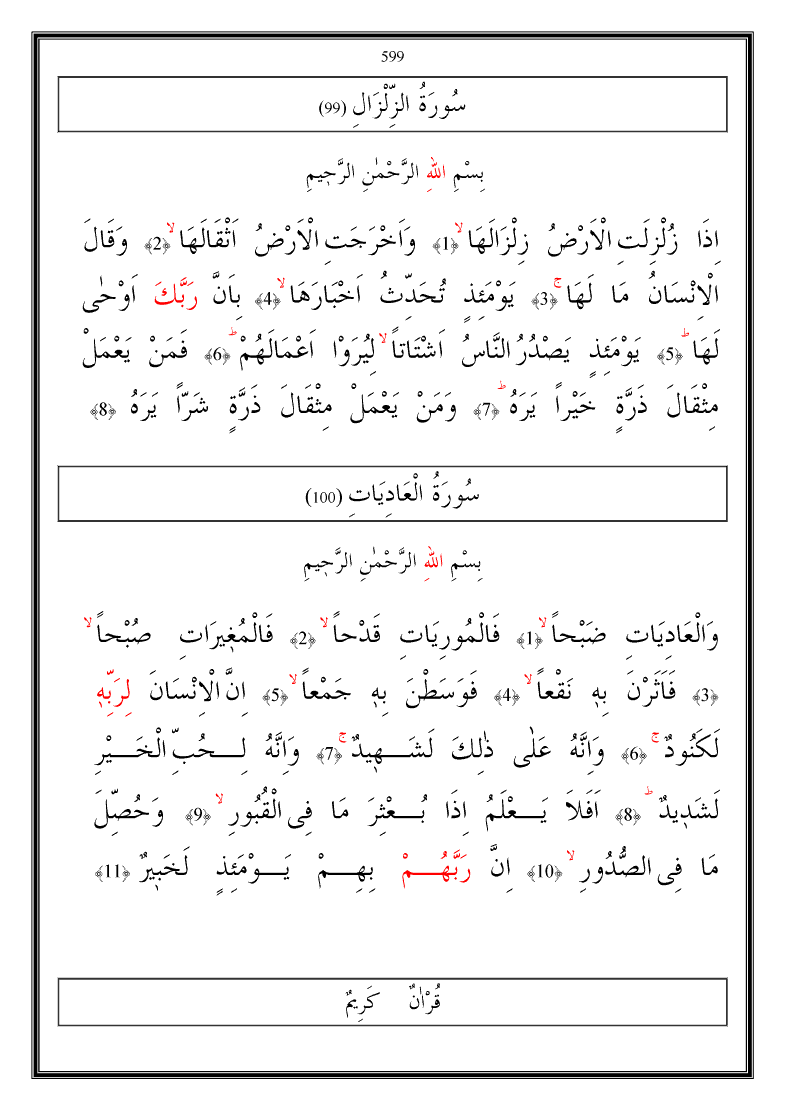 599
سُورَةُ الزِّلْزَالِ (99)
بِسْمِ اللّٰهِ الرَّحْمٰنِ الرَّحٖيمِ
اِذَا زُلْزِلَتِ الْاَرْضُ زِلْزَالَهَاۙ ﴿1﴾ وَاَخْرَجَتِ الْاَرْضُ اَثْقَالَهَاۙ ﴿2﴾ وَقَالَ
الْاِنْسَانُ مَا لَهَاۚ ﴿3﴾ يَوْمَئِذٍ تُحَدِّثُ اَخْبَارَهَاۙ ﴿4﴾ بِاَنَّ رَبَّكَ اَوْحٰى
لَهَاؕ ﴿5﴾ يَوْمَئِذٍ يَصْدُرُ النَّاسُ اَشْتَاتاًۙ لِيُرَوْا اَعْمَالَهُمْؕ ﴿6﴾ فَمَنْ يَعْمَلْ
مِثْقَالَ ذَرَّةٍ خَيْراً يَرَهُؕ ﴿7﴾ وَمَنْ يَعْمَلْ مِثْقَالَ ذَرَّةٍ شَرّاً يَرَهُ ﴿8﴾
سُورَةُ الْعَادِيَاتِ (100)
بِسْمِ اللّٰهِ الرَّحْمٰنِ الرَّحٖيمِ
وَالْعَادِيَاتِ ضَبْحاًۙ ﴿1﴾ فَالْمُورِيَاتِ قَدْحاًۙ ﴿2﴾ فَالْمُغٖيرَاتِ صُبْحاًۙ
﴿3﴾ فَاَثَرْنَ بِهٖ نَقْعاًۙ ﴿4﴾ فَوَسَطْنَ بِهٖ جَمْعاًۙ ﴿5﴾ اِنَّ الْاِنْسَانَ لِرَبِّهٖ
لَكَنُودٌۚ ﴿6﴾ وَاِنَّهُ عَلٰى ذٰلِكَ لَشَـــهٖيدٌۚ ﴿7﴾ وَاِنَّهُ لِـــحُبِّ الْخَـــيْرِ
لَشَدٖيدٌؕ ﴿8﴾ اَفَلَا يَـــعْلَمُ اِذَا بُـــعْثِرَ مَا فِى الْقُبُورِۙ ﴿9﴾ وَحُصِّلَ
مَا فِى الصُّدُورِۙ ﴿10﴾ اِنَّ رَبَّهُـــمْ بِهِـــمْ يَـــوْمَئِذٍ لَخَبٖيرٌ ﴿11﴾
قُرْاٰنٌ كَرٖيمٌ